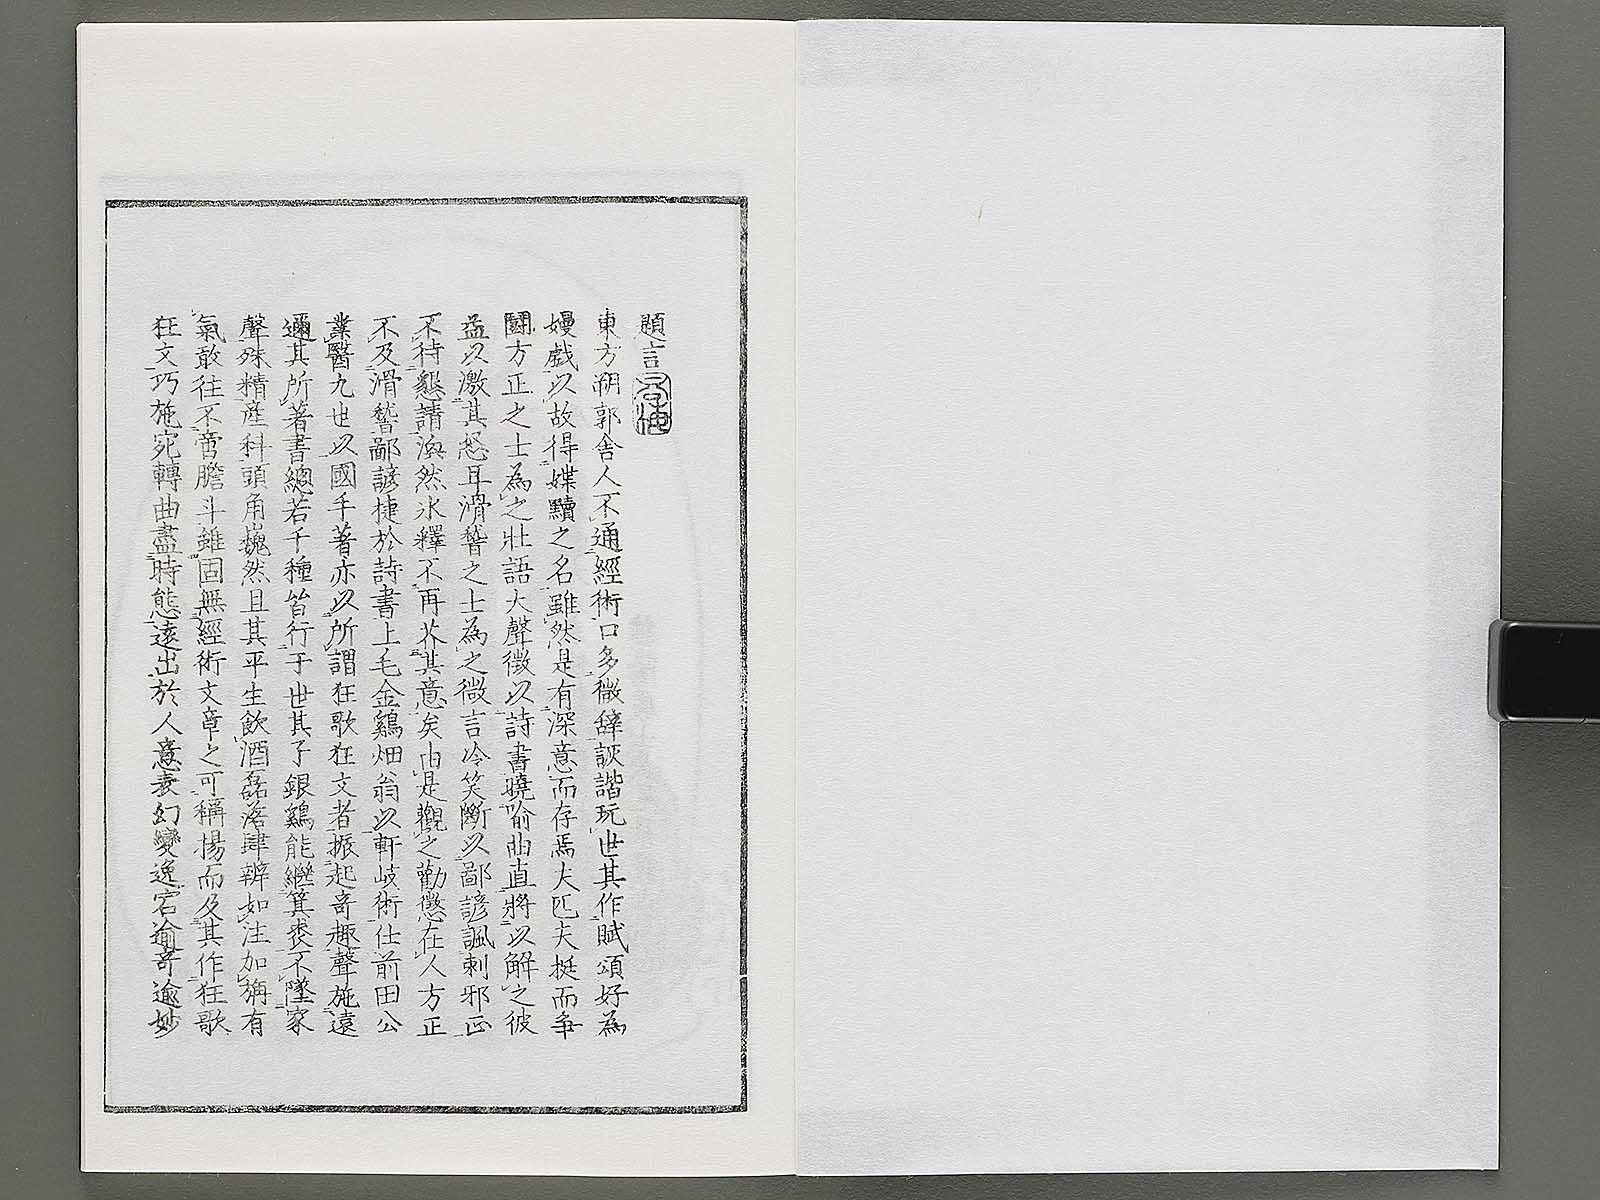 題言
東方朔郭舍人不通經術口多微辭詼諧玩世其作賦頌好為
嫚戯以故得媟黷之名雖然是有深意而存焉夫匹夫挺而争
鬪方正之士為之壯語大聲徴以詩書曉喻曲直將以解之彼
益以激其怒耳滑稽之士為之微言冷笑斷以鄙諺諷刺邪正
不待懇請渙然氷釋不再芥其意矣由是觀之勸懲在人方正
不及滑稽鄙諺捷於詩書上毛金鷄畑翁以軒岐術仕前田公
業醫九世以國手著亦以所謂狂歌狂文者振起奇趣聲施遠
邇其所著書總若干種皆行于世其子銀鷄能繼箕裘不墜家
聲殊精産科頭角巍然且其平生飲酒磊落肆辨如注加旃有
氣敢往不啻膽斗雖固無經術文章之可稱揚而及其作狂歌
狂文巧施宛轉曲盡時態遠出於人意表幻變逸宕逾奇逾妙